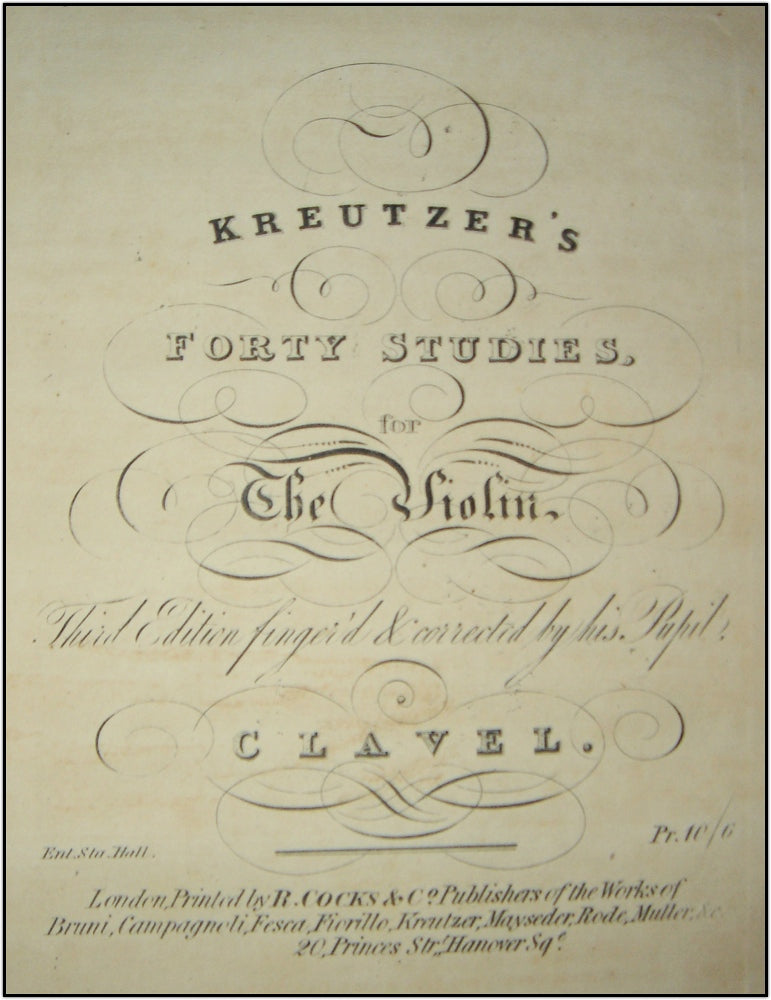 KREUTZER'S
FORTY STUDIES,
for
The Violin.
Third Edition finger'd & corrected by his Pupil.
CLAVEL.
Ent. Sta. Hall.
Pr. 10/6
London, Printed by R. COCKS & Co. Publishers of the Works of
Bruni, Campagnoli, Fesca, Fiorillo, Kreutzer, Mayseder, Rode, Muller, &c.
20, Princes Str. Hanover Sqe.